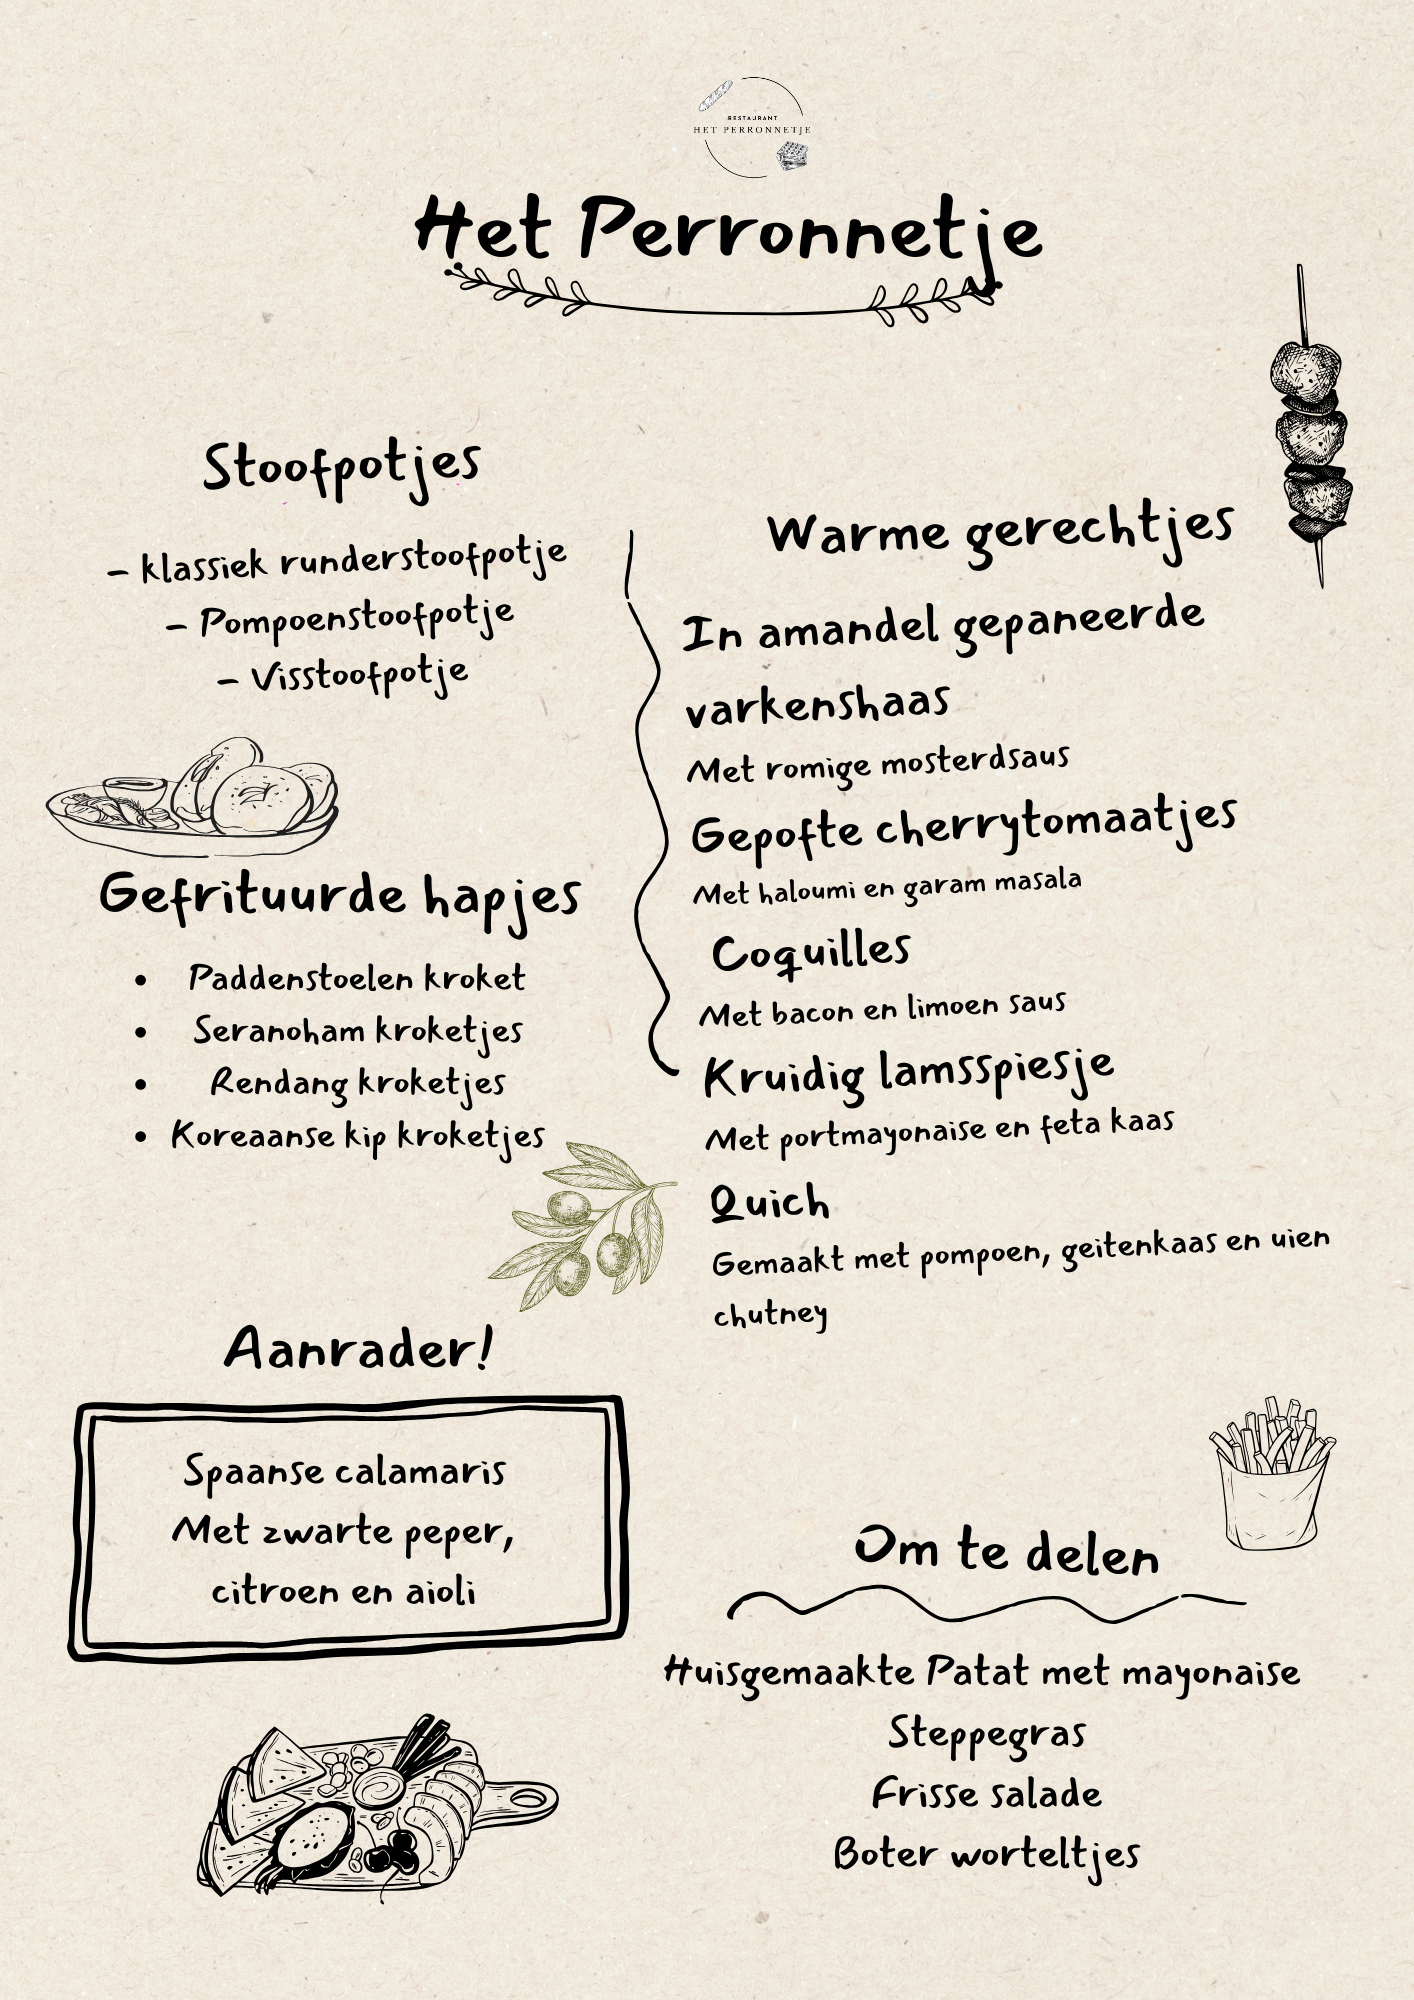 RESTAURANT
HET PERRONNETJE
Het Perronnetje
Stoofpotjes
- klassiek runderstoofpotje
- Pompoenstoofpotje
- Visstoofpotje
Gefrituurde hapjes
• Paddenstoelen kroket
• Seranoham kroketjes
• Rendang kroketjes
• Koreaanse kip kroketjes
Aanrader!
Spaanse calamaris
Met zwarte peper,
citroen en aioli
Warme gerechtjes
In amandel gepaneerde
varkenshaas
Met romige mosterdsaus
Gepofte cherrytomaatjes
Met haloumi en garam masala
Coquilles
Met bacon en limoen saus
Kruidig lamsspiesje
Met portmayonaise en feta kaas
Quich
Gemaakt met pompoen, geitenkaas en uien
chutney
Om te delen
Huisgemaakte Patat met mayonaise
Steppegras
Frisse salade
Boter worteltjes